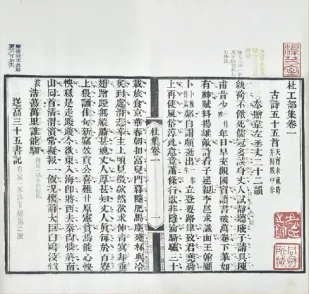 杜工部集卷一
古詩五十五首
奉贈韋左丞丈二十二韻
紈袴不餓死儒冠多誤身丈人試靜聽賤子請具陳
甫昔少年日早充觀國賓讀書破萬卷下筆如
有神賦料揚雄敵詩看子建親李邕求識面王翰願
卜鄰自謂頗挺出立登要路津致君堯舜
上再使風俗淳此意竟蕭條行歌非隱淪騎驢三十
杜集卷一
載旅食京華春朝扣富兒門暮隨肥馬塵殘杯與冷
炙到處潛悲辛主上頃見徵欻然欲求伸青冥却垂
翅蹭蹬無縱鱗甚愧丈人厚甚知丈人真每於百寮
上猥誦佳句新竊效貢公喜難甘原憲貧焉能心怏
怏秪是走踆踆今欲東入海即將西去秦尚憐終南
山回首清渭濱常擬報一飯況懷辭大臣白鷗
浩蕩萬里誰能馴
送高三十五書記